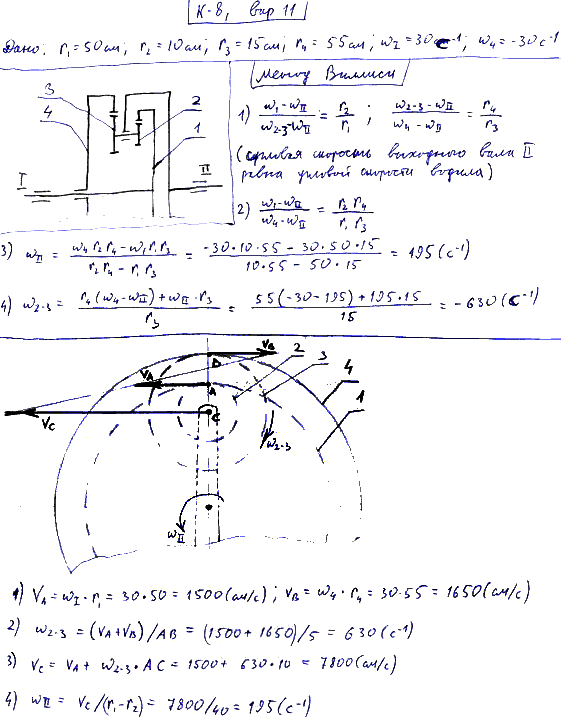 К-8, вар 11
Дано: r₁ = 50 см; r₂ = 10 см; r₃ = 15 см; r₄ = 55 см; ω_I = 30 с⁻¹; ω₄ = -30 с⁻¹
Метод Виллиса
3
4
2
1
I
II
1) (ω₁ - ω_II)/(ω₂₋₃ - ω_II) = r₂/r₁ ; (ω₂₋₃ - ω_II)/(ω₄ - ω_II) = r₄/r₃
(угловая скорость выходного вала II
равна угловой скорости водила)
2) (ω₁ - ω_II)/(ω₄ - ω_II) = r₂ r₄/r₁ r₃
3) ω_II = (ω₄ r₂ r₄ - ω₁ r₁ r₃)/(r₂ r₄ - r₁ r₃) = (-30·10·55 - 30·50·15)/(10·55 - 50·15) = 195 (с⁻¹)
4) ω₂₋₃ = (r₄(ω₄ - ω_II) + ω_II · r₃)/r₃ = (55(-30 - 195) + 195·15)/15 = -630 (с⁻¹)
V_B
B
2
3
4
1
V_A
A
V_C
C
ω₂₋₃
ω_II
1) V_A = ω_I · r₁ = 30·50 = 1500 (см/с) ; V_B = ω₄ · r₄ = 30·55 = 1650 (см/с)
2) ω₂₋₃ = (V_A + V_B)/AB = (1500 + 1650)/5 = 630 (с⁻¹)
3) V_C = V_A + ω₂₋₃ · AC = 1500 + 630·10 = 7800 (см/с)
4) ω_II = V_C/(r₁ - r₂) = 7800/40 = 195 (с⁻¹)